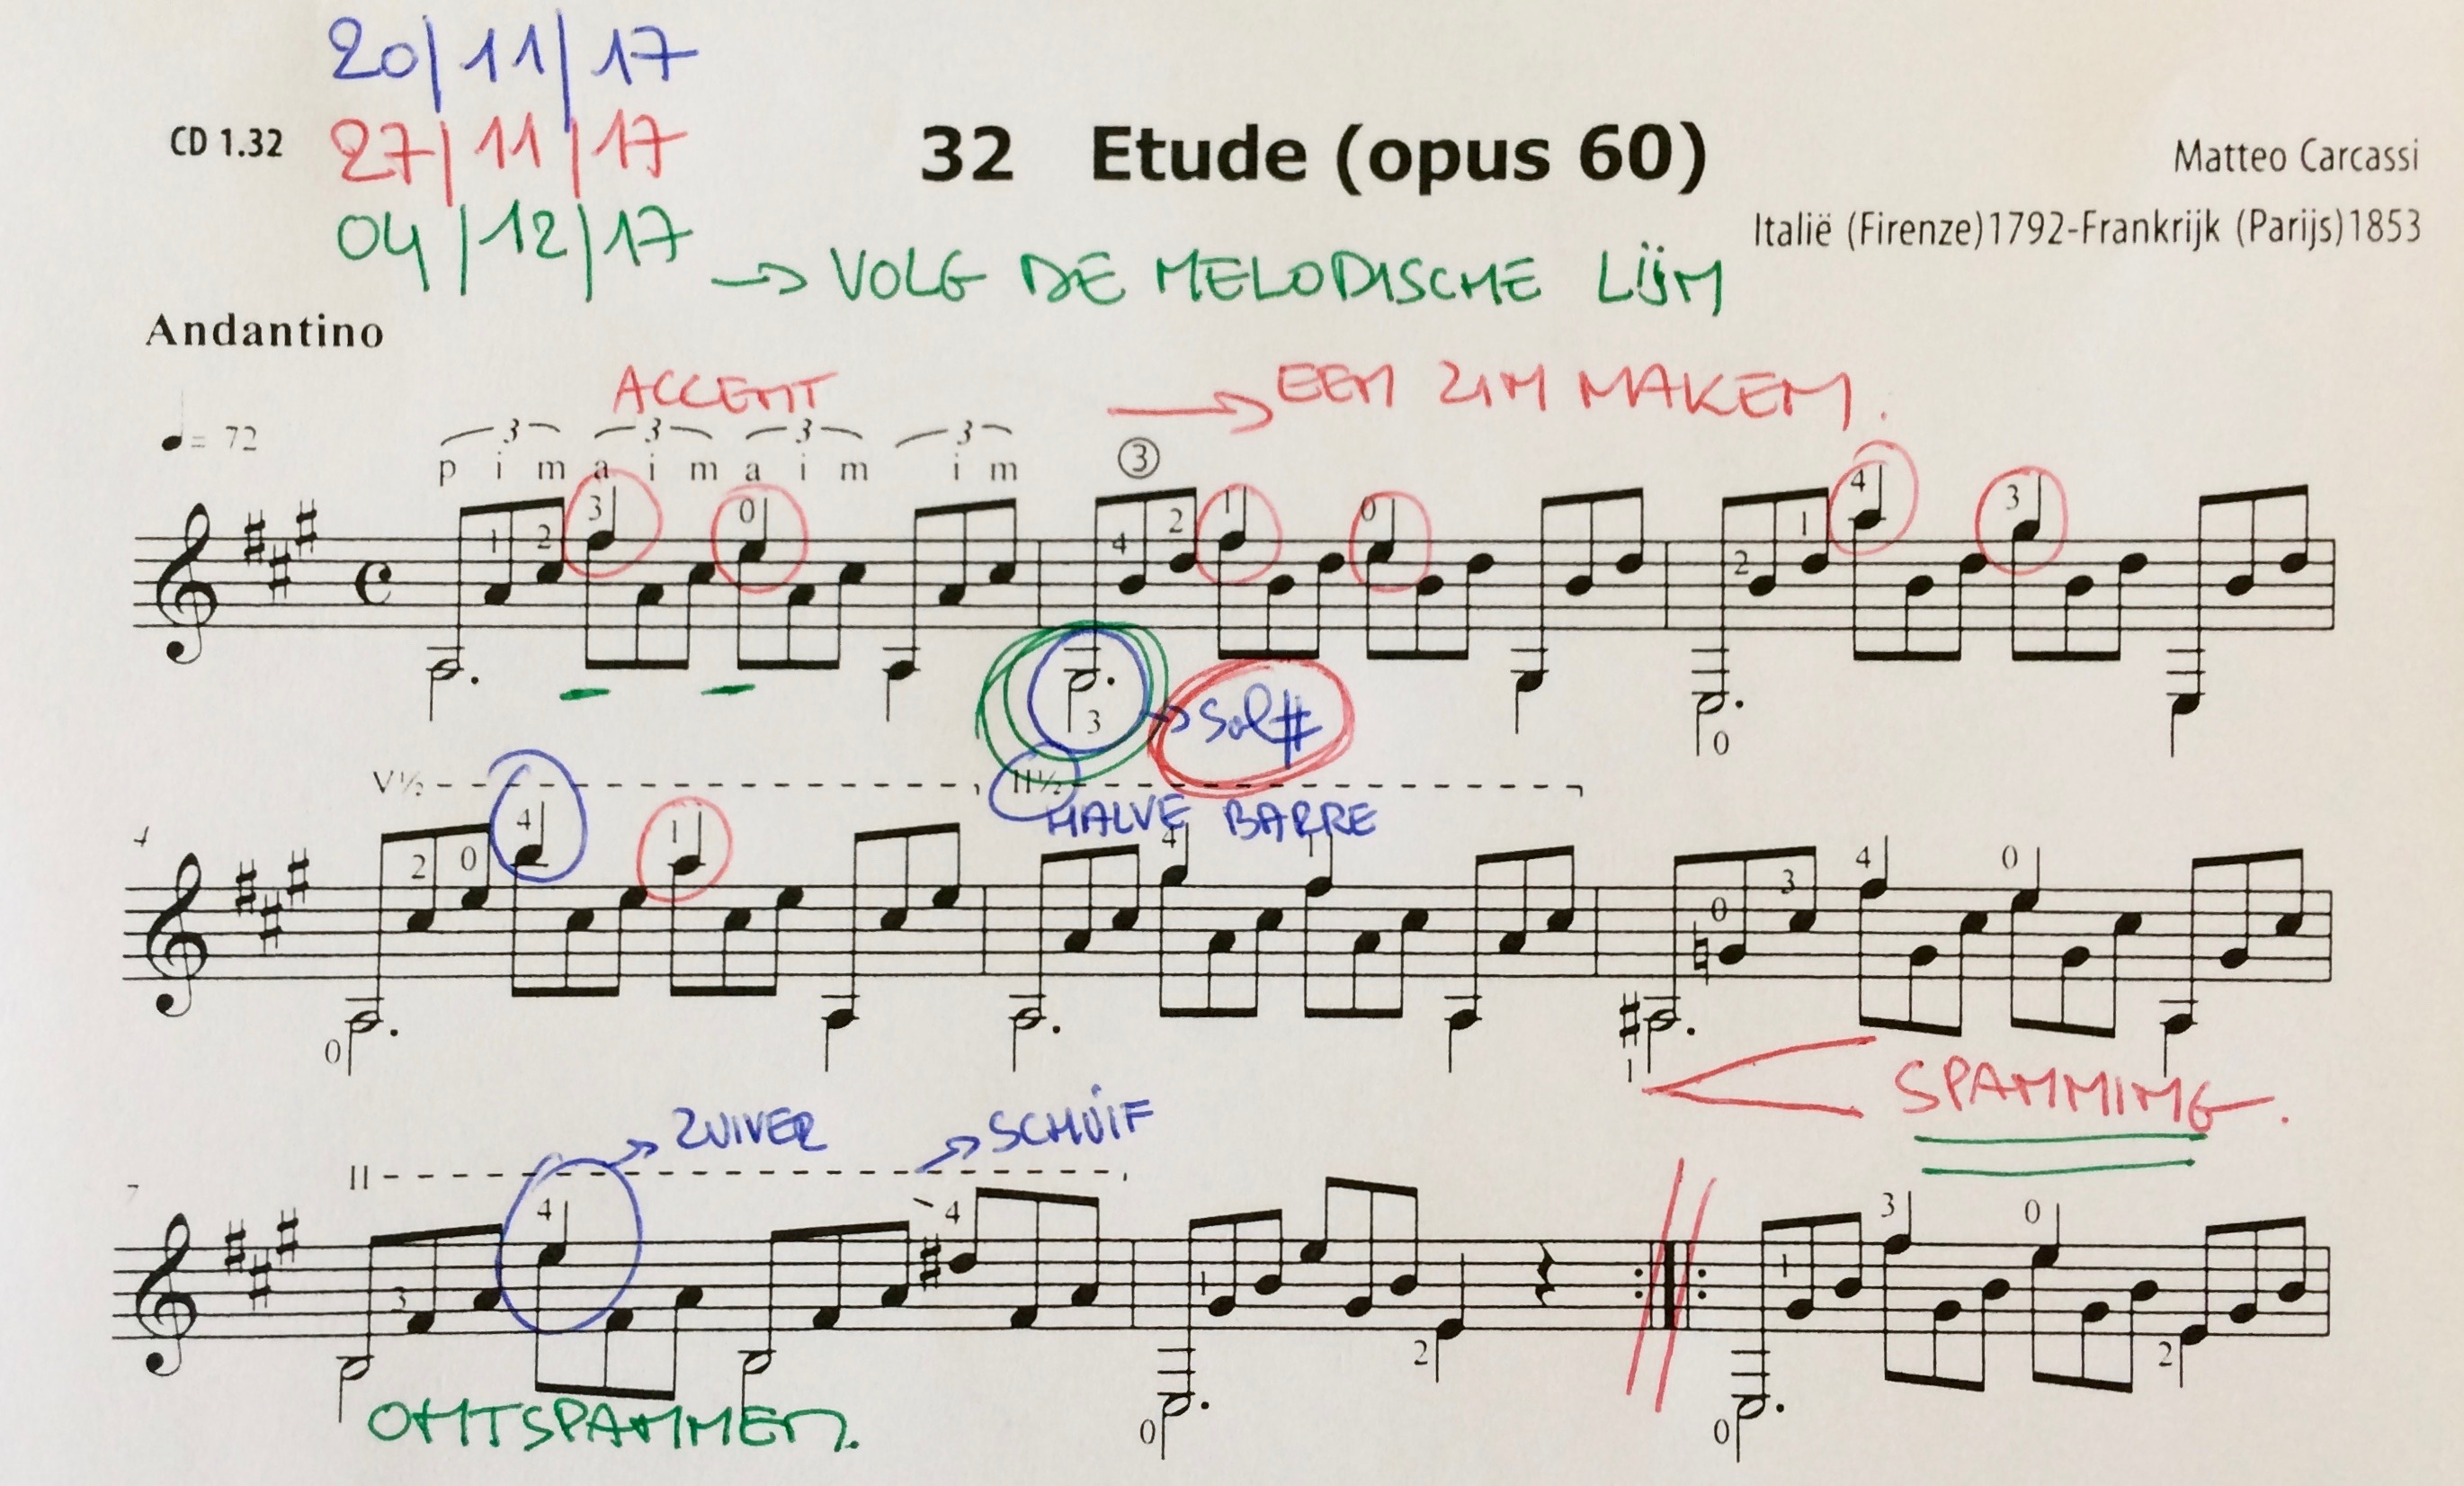 20/11/17
CD 1.32
27/11/17
32 Etude (opus 60)
Matteo Carcassi
04/12/17
Italië (Firenze)1792-Frankrijk (Parijs)1853
→ VOLG DE MELODISCHE LIJN
Andantino
ACCENT
→ EEN ZIN MAKEN.
♩= 72
3 3 3 3
p i m a i m a i m i m
③
1 2 3 0 4 2 1 0 2 1 4 3
3 → Sol#
0
V½ II½
HALVE BARRE
4
2 0 4 1 4 1 0 3 4 0
0 1
SPANNING.
→ ZUIVER → SCHUIF
II
7
3 4 4 1 2 1 3 0 2
0 0
ONTSPANNEN.